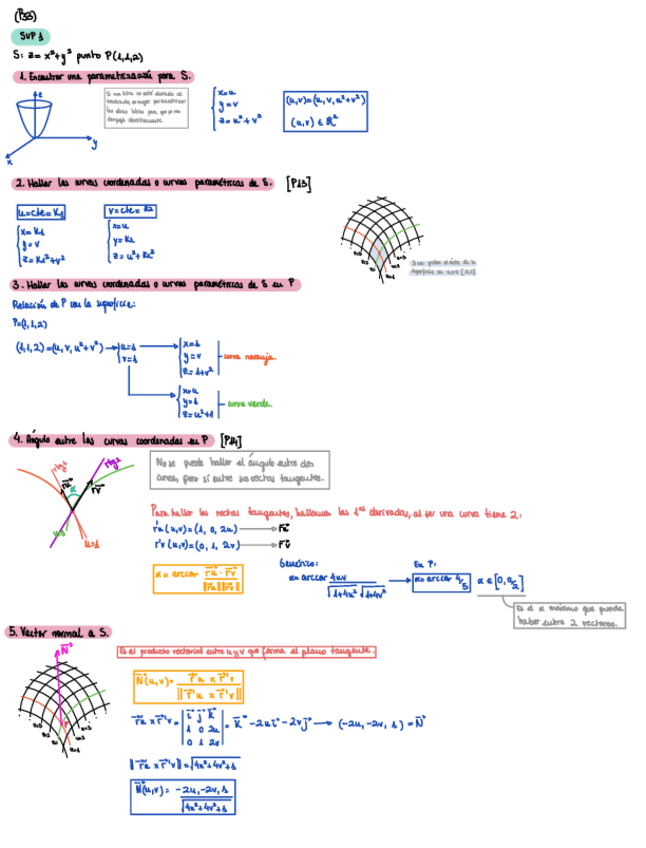 (P33)
SUP 1
S: z = x²+y² punto P(1,1,2)
1. Encontrar una parametrización para S.
z
y
x
x=u
y=v
z=u²+v²
(u,v)=(u, v, u²+v²)
(u,v) ∈ ℝ²
2. Hallar las curvas coordenadas o curvas paramétricas de S. [P13]
u=cte=K₁
x=K₁
y=v
z=K₁²+v²
v=cte=K₂
x=u
y=K₂
z=u²+K₂²
3. Hallar las curvas coordenadas o curvas paramétricas de S en P
Relación de P con la superficie:
P=(1,1,2)
(1,1,2)=(u, v, u²+v²) → u=1
v=1
x=1
y=v
z=1+v²
curva naranja
x=u
y=1
z=u²+1
curva verde
4. Ángulo entre las curvas coordenadas en P [P14]
No se puede hallar el ángulo entre dos
curvas, pero sí entre sus rectas tangentes.
rtg1
rtg2
α
u=1
Para hallar las rectas tangentes, hallamos las 1ᵃˢ derivadas, al ser una curva tiene 2.
r'u (u,v)=(1, 0, 2u) → r̄u
r'v (u,v)=(0, 1, 2v) → r̄v
α = arccos r̄u · r̄v / ||r̄u|| ||r̄v||
Genérico:
α = arccos 4uv / √1+4u² √1+4v²
En P:
α = arccos 4/5
α ∈ [0, π/2]
Es el α máximo que puede
haber entre 2 vectores.
5. Vector normal a S.
N
Es el producto vectorial entre u y v que forma el plano tangente.
N(u,v) = r'u x r'v / || r'u x r'v ||
r'u x r'v = | i j k | = k - 2ui - 2vj → (-2u, -2v, 1) = N
1 0 2u
0 1 2v
|| r'u x r'v || = √4u²+4v²+1
N(u,v) = -2u, -2v, 1 / √4u²+4v²+1